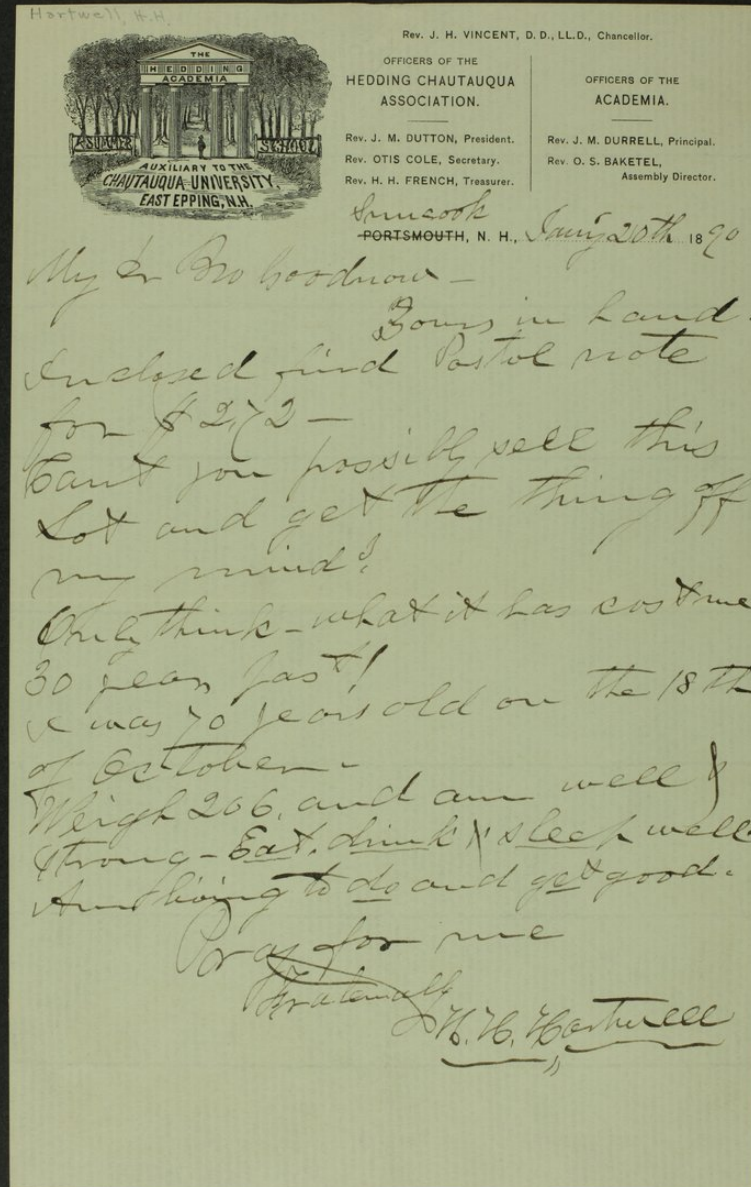 Hartwell, H.H.
THE
HEDDING
ACADEMIA
A SUMMER SCHOOL
AUXILIARY TO THE
CHAUTAUQUA UNIVERSITY.
EAST EPPING, N.H.
Rev. J. H. VINCENT, D. D., LL.D., Chancellor.
OFFICERS OF THE
HEDDING CHAUTAUQUA
ASSOCIATION.
Rev. J. M. DUTTON, President.
Rev. OTIS COLE, Secretary.
Rev. H. H. FRENCH, Treasurer.
OFFICERS OF THE
ACADEMIA.
Rev. J. M. DURRELL, Principal.
Rev. O. S. BAKETEL,
Assembly Director.
Suncook
PORTSMOUTH, N. H., Jany 20th 1890
My Dr Bro Goodnow —
Yours in hand.
Inclosed find Postal note
for $2.72 —
Cant you possibly sell this
Lot and get the thing off
my mind?
Only think - what it has cost me
30 years past!
I was 70 years old on the 18th
of October -
Weigh 206, and am well &
strong - Eat, drink & sleep well
Am living to do and get good.
Pray for me
Fraternally
H. H. Hartwell